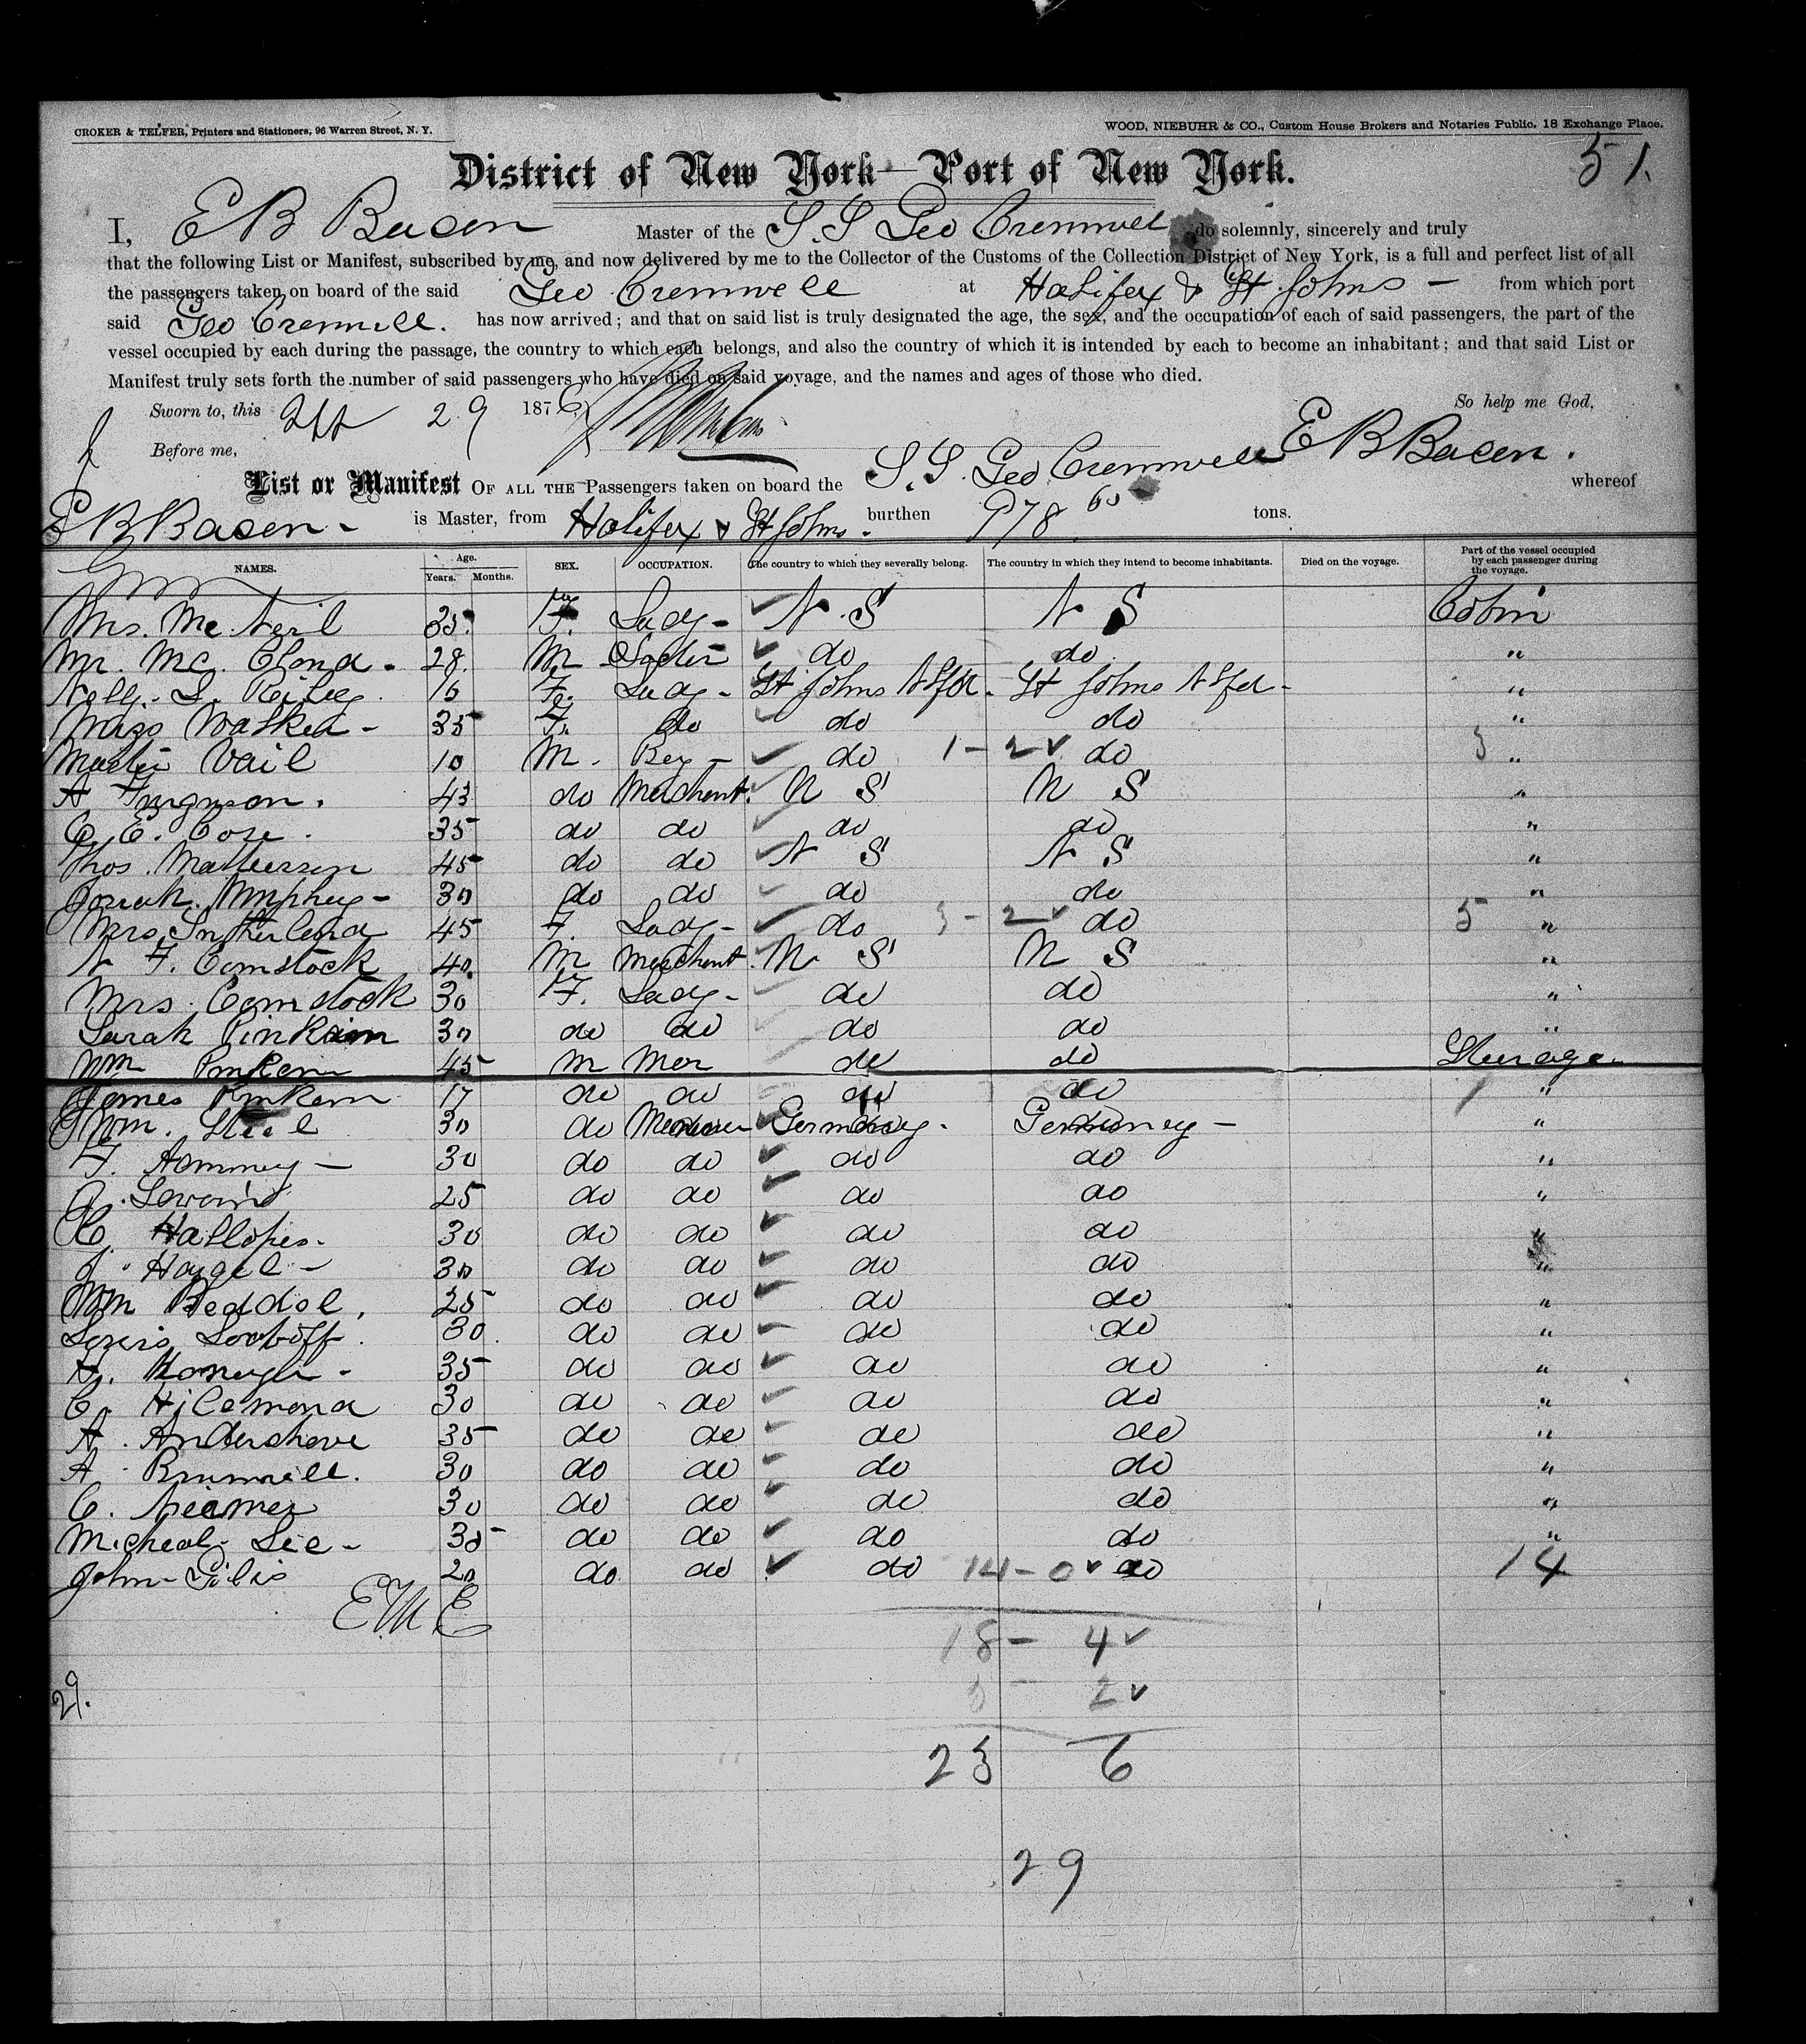 CROKER & TELFER, Printers and Stationers, 96 Warren Street, N. Y.
WOOD, NIEBUHR & CO., Custom House Brokers and Notaries Public, 18 Exchange Place.
51.
District of New York—Port of New York.
I, E B Bacon Master of the S. S Geo Cromwell do solemnly, sincerely and truly
that the following List or Manifest, subscribed by me, and now delivered by me to the Collector of the Customs of the Collection District of New York, is a full and perfect list of all
the passengers taken on board of the said Geo Cromwell at Halifax & St Johns — from which port
said Geo Cromwell. has now arrived; and that on said list is truly designated the age, the sex, and the occupation of each of said passengers, the part of the
vessel occupied by each during the passage, the country to which each belongs, and also the country of which it is intended by each to become an inhabitant; and that said List or
Manifest truly sets forth the number of said passengers who have died on said voyage, and the names and ages of those who died.
Sworn to, this 29 1876 So help me God,
Before me, E B Bacon.
List or Manifest OF ALL THE Passengers taken on board the S. S. Geo Cromwell whereof
E B Bacon - is Master, from Halifax & St Johns. burthen 978 60 tons.
NAMES. Age. Years. Months. SEX. OCCUPATION. The country to which they severally belong. The country in which they intend to become inhabitants. Died on the voyage. Part of the vessel occupied by each passenger during the voyage.
Mrs. McNeil 35 F. Lady - N. S N S Cabin
Mr. Mc. Cloud - 28. M Doctor do do "
Nelly. L. Reiley 16 F. Lady - St Johns N Fld - St Johns N Fld - "
Walker - 35 F. do do do "
Master Vail 10 M. Boy - do 1 - 2 do 3 "
A Furgnson. 43 do Merchant. N S N S "
C. E. Cose. 35 do do do do "
Thos. Matterson 45 do do N S N S "
Josiah Umphey - 30 do do do do "
Mrs Sutherland 45 F. Lady - do 3 - 2 do 5 "
N F. Comstock 40. M Merchant. N S N S "
Mrs. Comstock 30 F. Lady - do do "
Sarah Pinkham 30 do do do do "
Wm Pinkam 45 M Mar do do Steerage -
James Pinkam 17 do do do do 1 "
Wm. Steel 30 do Germany - Germany - "
F. Hammey - 30 do do do do "
25 do do do do "
C. Hallopes - 30 do do do do "
J. Haygel - 30 do do do do "
Wm Beddol. 25 do do do do "
Louis Lootoff. 30. do do do do "
H. 35 do do do do "
C. Hilemond 30 do do do do "
A. Andershove 35 do do do do "
A. Brumwell. 30 do do do do "
C. Niemer 30 do do do do "
Micheal. Lee - 35 do do do do "
John - Gilis 20 do. do do 14 - 0 do 14
E. M. E
18 - 4
29. 5 - 2
23 6
29